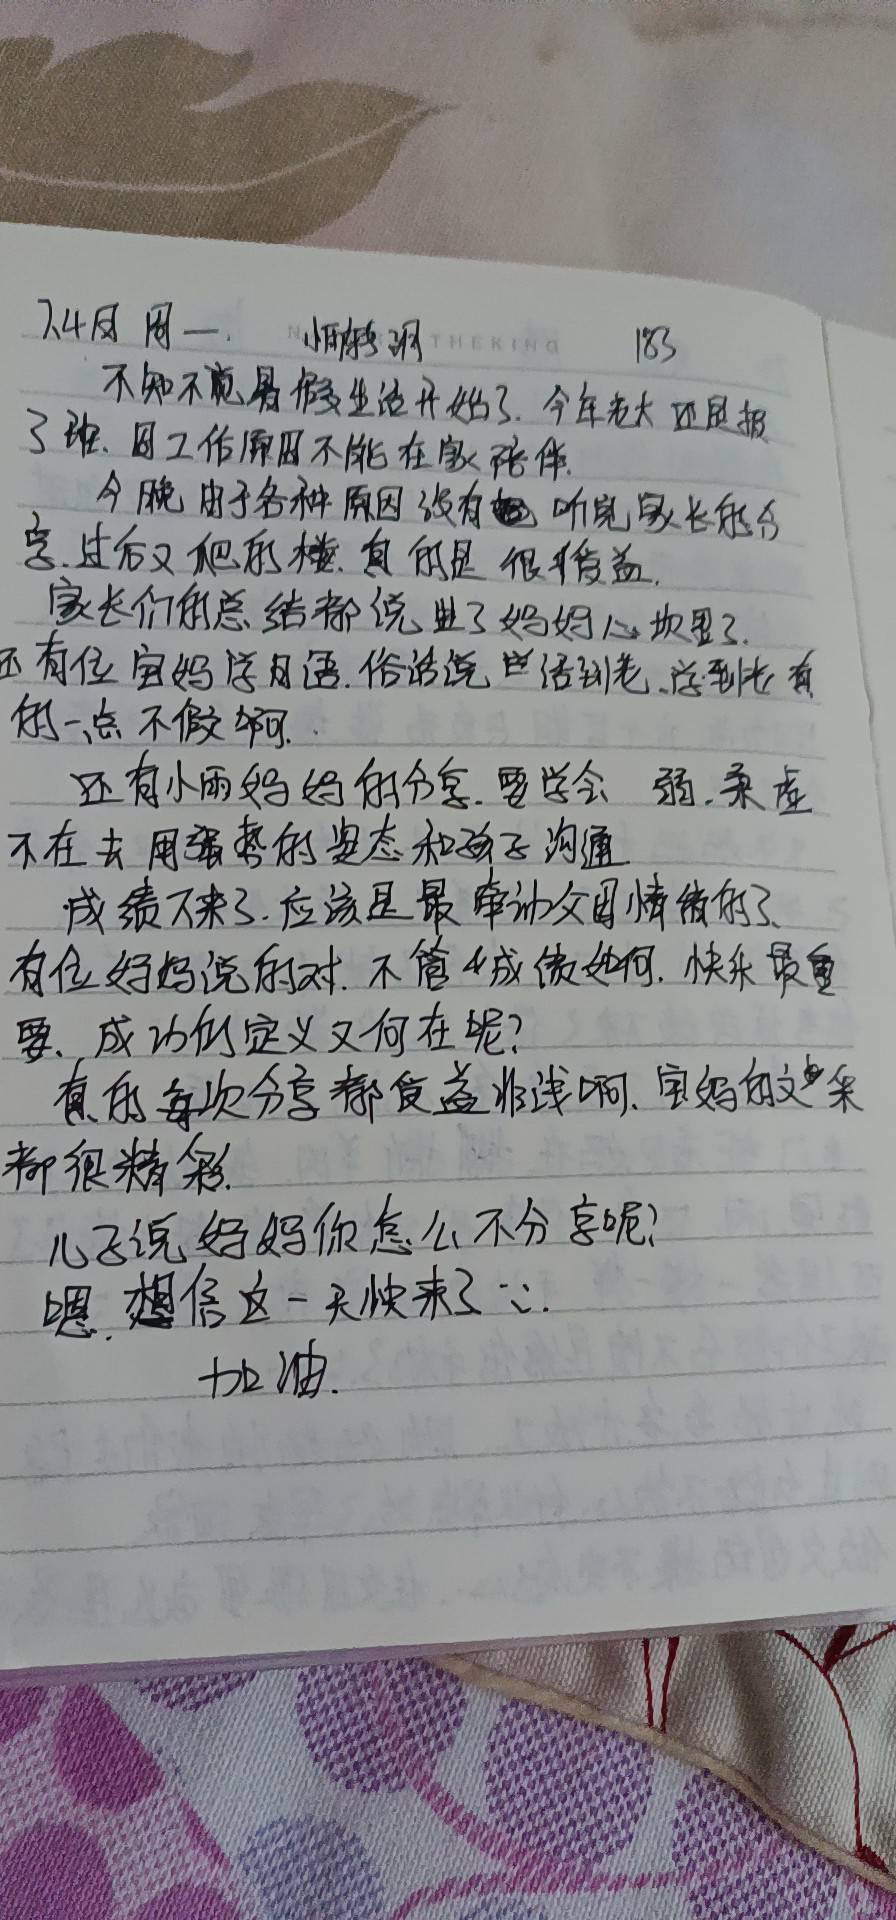 7.4日 周一. 183
不知不觉暑假生活开始了. 今年老大还是报
了班、因工作原因不能在家陪伴.
今晚由于各种原因没有 听完家长的分
享.过后又爬的楼.真的是很受益.
家长们的总结都说出了妈妈心坎里了.
还有位宝妈学日语.俗话说 活到老、学到老 有
的一点不假啊.
还有小雨妈妈的分享.要学会 弱.柔虚
不在去用强势的姿态和孩子沟通
成绩下来了.应该是最牵动父母情绪的了、
有位妈妈说的对.不管 成绩如何.快乐最重
要、成功的定义又何在呢?
真的每次分享都受益非浅啊、宝妈的文采
都很精彩.
儿子说妈妈你怎么不分享呢?
嗯.想信这一天快来了
加油.